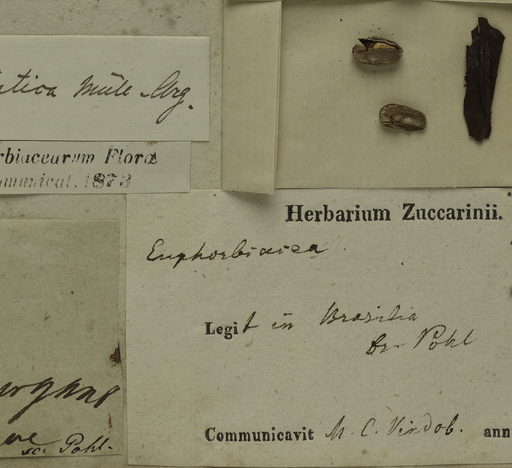 Müll. Arg.
rbiacearum Floræ
ommunicat. 1873
Herbarium Zuccarinii.
Euphorbiacea
Legit in Brasilia
Dr. Pohl
Communicavit M. C. Vindob. ann
Pohl.